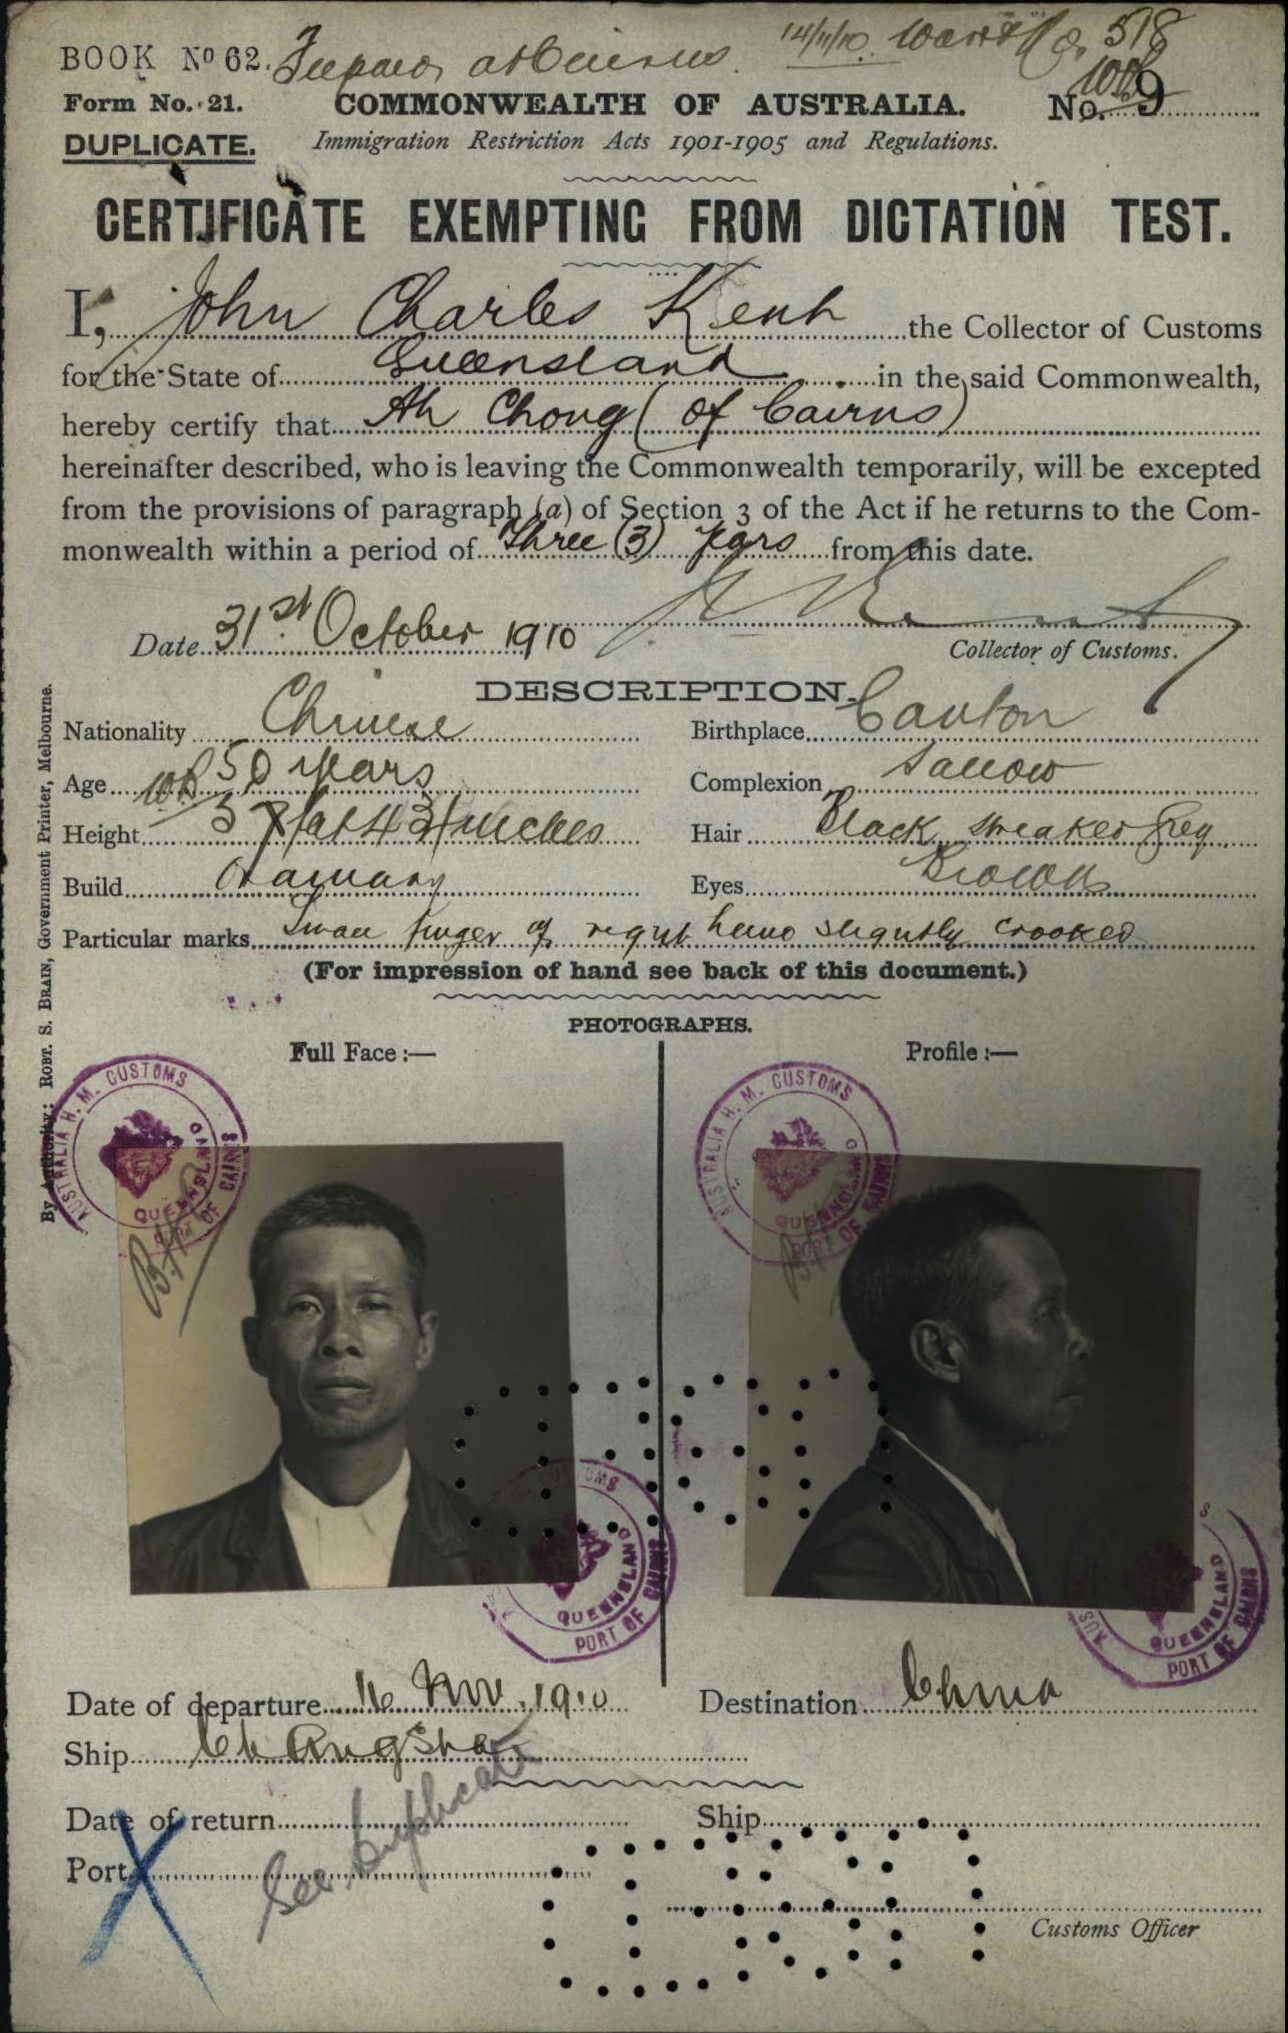 BOOK Nº 62. 14/11/10. 518
Form No. 21. COMMONWEALTH OF AUSTRALIA. No. 9
DUPLICATE. Immigration Restriction Acts 1901-1905 and Regulations.
CERTIFICATE EXEMPTING FROM DICTATION TEST.
I, John Charles Kent the Collector of Customs
for the State of Queensland in the said Commonwealth,
hereby certify that Ah Chong (of Cairns)
hereinafter described, who is leaving the Commonwealth temporarily, will be excepted
from the provisions of paragraph (a) of Section 3 of the Act if he returns to the Com-
monwealth within a period of Three (3) years from this date.
Date 31st. October 1910
Collector of Customs.
DESCRIPTION.
Nationality Chinese Birthplace Canton
Age 50 years Complexion Sallow
Height 5 feet 4 3/4 inches Hair Black streaked Grey.
Build Ordinary Eyes Brown
Particular marks Small finger of right hand slightly crooked
(For impression of hand see back of this document.)
PHOTOGRAPHS.
Full Face :— Profile :—
AUSTRALIA H. M. CUSTOMS
QUEENSLAND
PORT OF CAIRNS
AUSTRALIA H. M. CUSTOMS
QUEENSLAND
PORT OF CAIRNS
QUEENSLAND
PORT OF CAIRNS
QUEENSLAND
PORT OF CAIRNS
Date of departure 16 Nov. 1910 Destination China
Ship Changsha
Date of return Ship
Port
See Duplicate
Customs Officer
By Authority: ROBT. S. BRAIN, Government Printer, Melbourne.